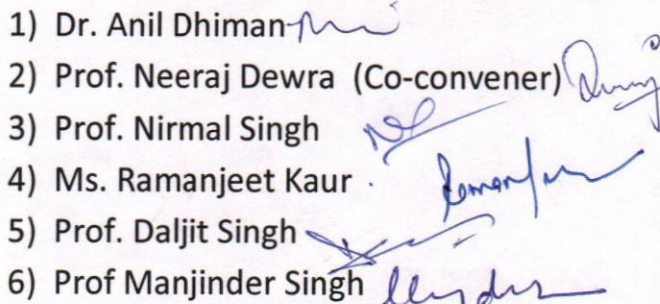 1) Dr. Anil Dhiman
2) Prof. Neeraj Dewra (Co-convener)
3) Prof. Nirmal Singh
4) Ms. Ramanjeet Kaur
5) Prof. Daljit Singh
6) Prof Manjinder Singh